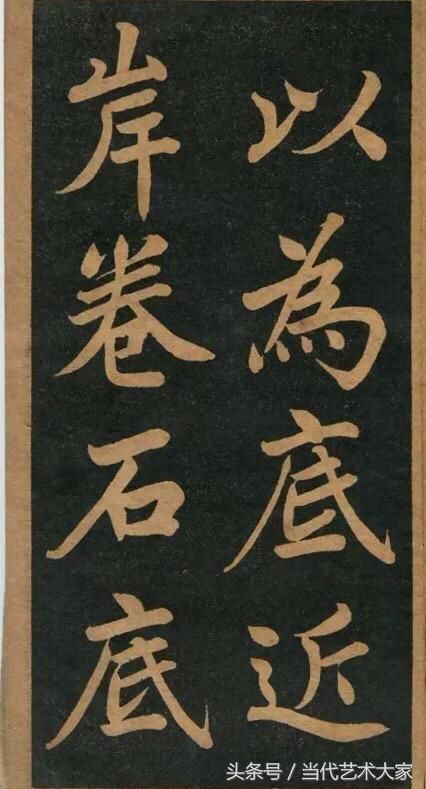 以為底近
岸卷石底
头条号/当代艺术大家